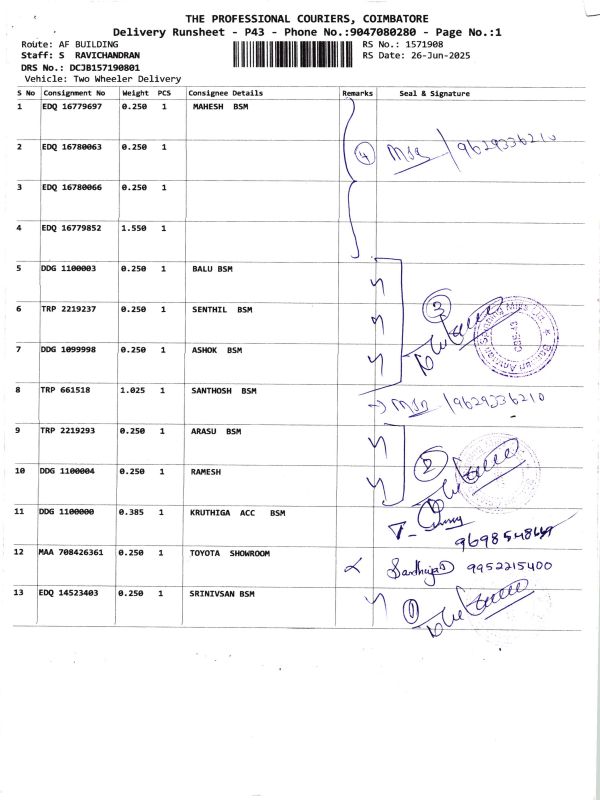 THE PROFESSIONAL COURIERS, COIMBATORE
Delivery Runsheet - P43 - Phone No.:9047080280 - Page No.:1
Route: AF BUILDING RS No.: 1571908
Staff: S RAVICHANDRAN RS Date: 26-Jun-2025
DRS No.: DCJB157190801
Vehicle: Two Wheeler Delivery
S No Consignment No Weight PCS Consignee Details Remarks Seal & Signature
1 EDQ 16779697 0.250 1 MAHESH BSM
2 EDQ 16780063 0.250 1 4 9629336210
3 EDQ 16780066 0.250 1
4 EDQ 16779852 1.550 1
5 DDG 1100003 0.250 1 BALU BSM
6 TRP 2219237 0.250 1 SENTHIL BSM 3
7 DDG 1099998 0.250 1 ASHOK BSM
8 TRP 661518 1.025 1 SANTHOSH BSM 9629336210
9 TRP 2219293 0.250 1 ARASU BSM
10 DDG 1100004 0.250 1 RAMESH 2
11 DDG 1100000 0.385 1 KRUTHIGA ACC BSM
12 MAA 708426361 0.250 1 TOYOTA SHOWROOM 9952215400
13 EDQ 14523403 0.250 1 SRINIVSAN BSM 1